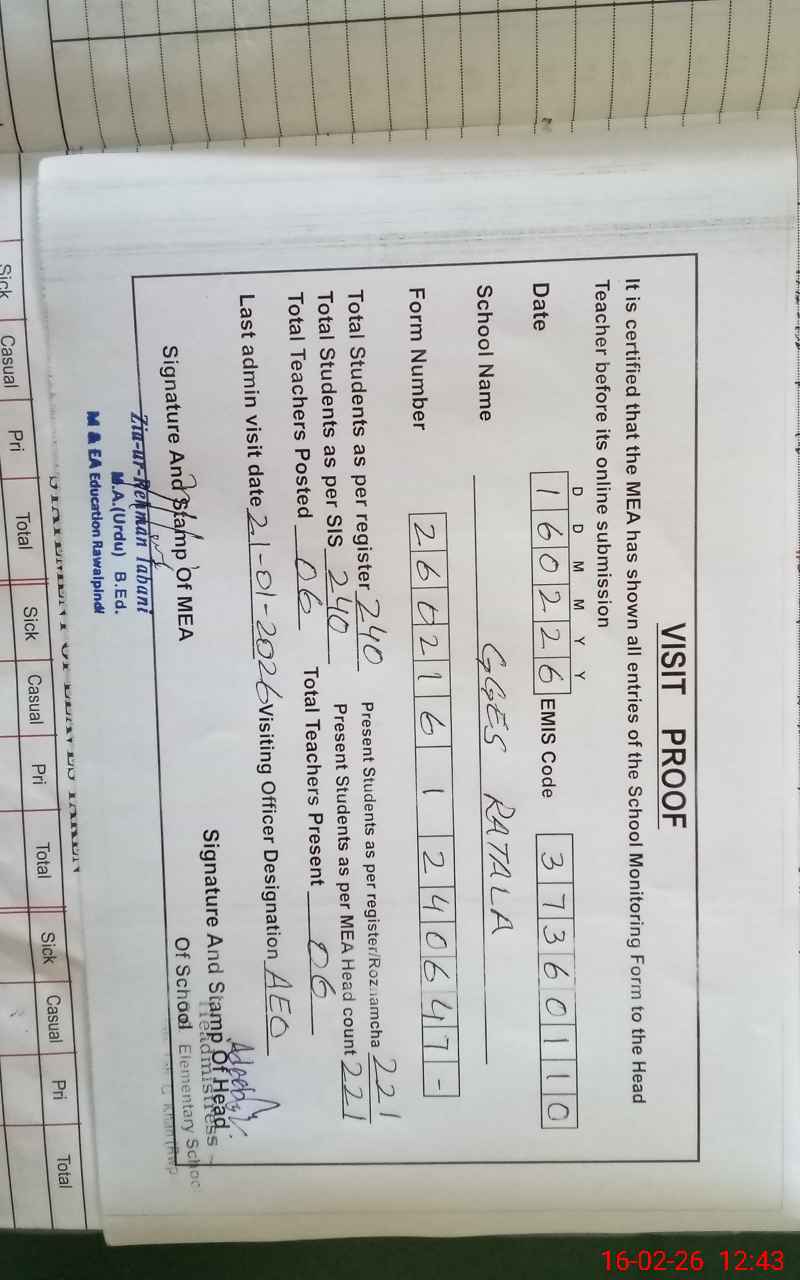 VISIT PROOF
It is certified that the MEA has shown all entries of the School Monitoring Form to the Head
Teacher before its online submission
D D M M Y Y
Date 1 6 0 2 2 6 EMIS Code 3 7 3 6 0 1 1 0
School Name GGES RATALA
Form Number 2 6 0 2 1 6 1 1 2 4 0 6 4 7 -
Total Students as per register 240 Present Students as per register/Roznamcha 221
Total Students as per SIS 240 Present Students as per MEA Head count 221
Total Teachers Posted 06 Total Teachers Present 06
Last admin visit date 21-01-2026 Visiting Officer Designation AEO
Signature And Stamp Of MEA
Signature And Stamp Of Head
Of School
Headmistress
Elementary School
Zia-ur-Rehman Tabani
M.A.(Urdu) B.Ed.
M & EA Education Rawalpindi
STATEMENT OF LEAVES TAKEN
Sick Casual Pri Total Sick Casual Pri Total Sick Casual Pri Total
16-02-26 12:43